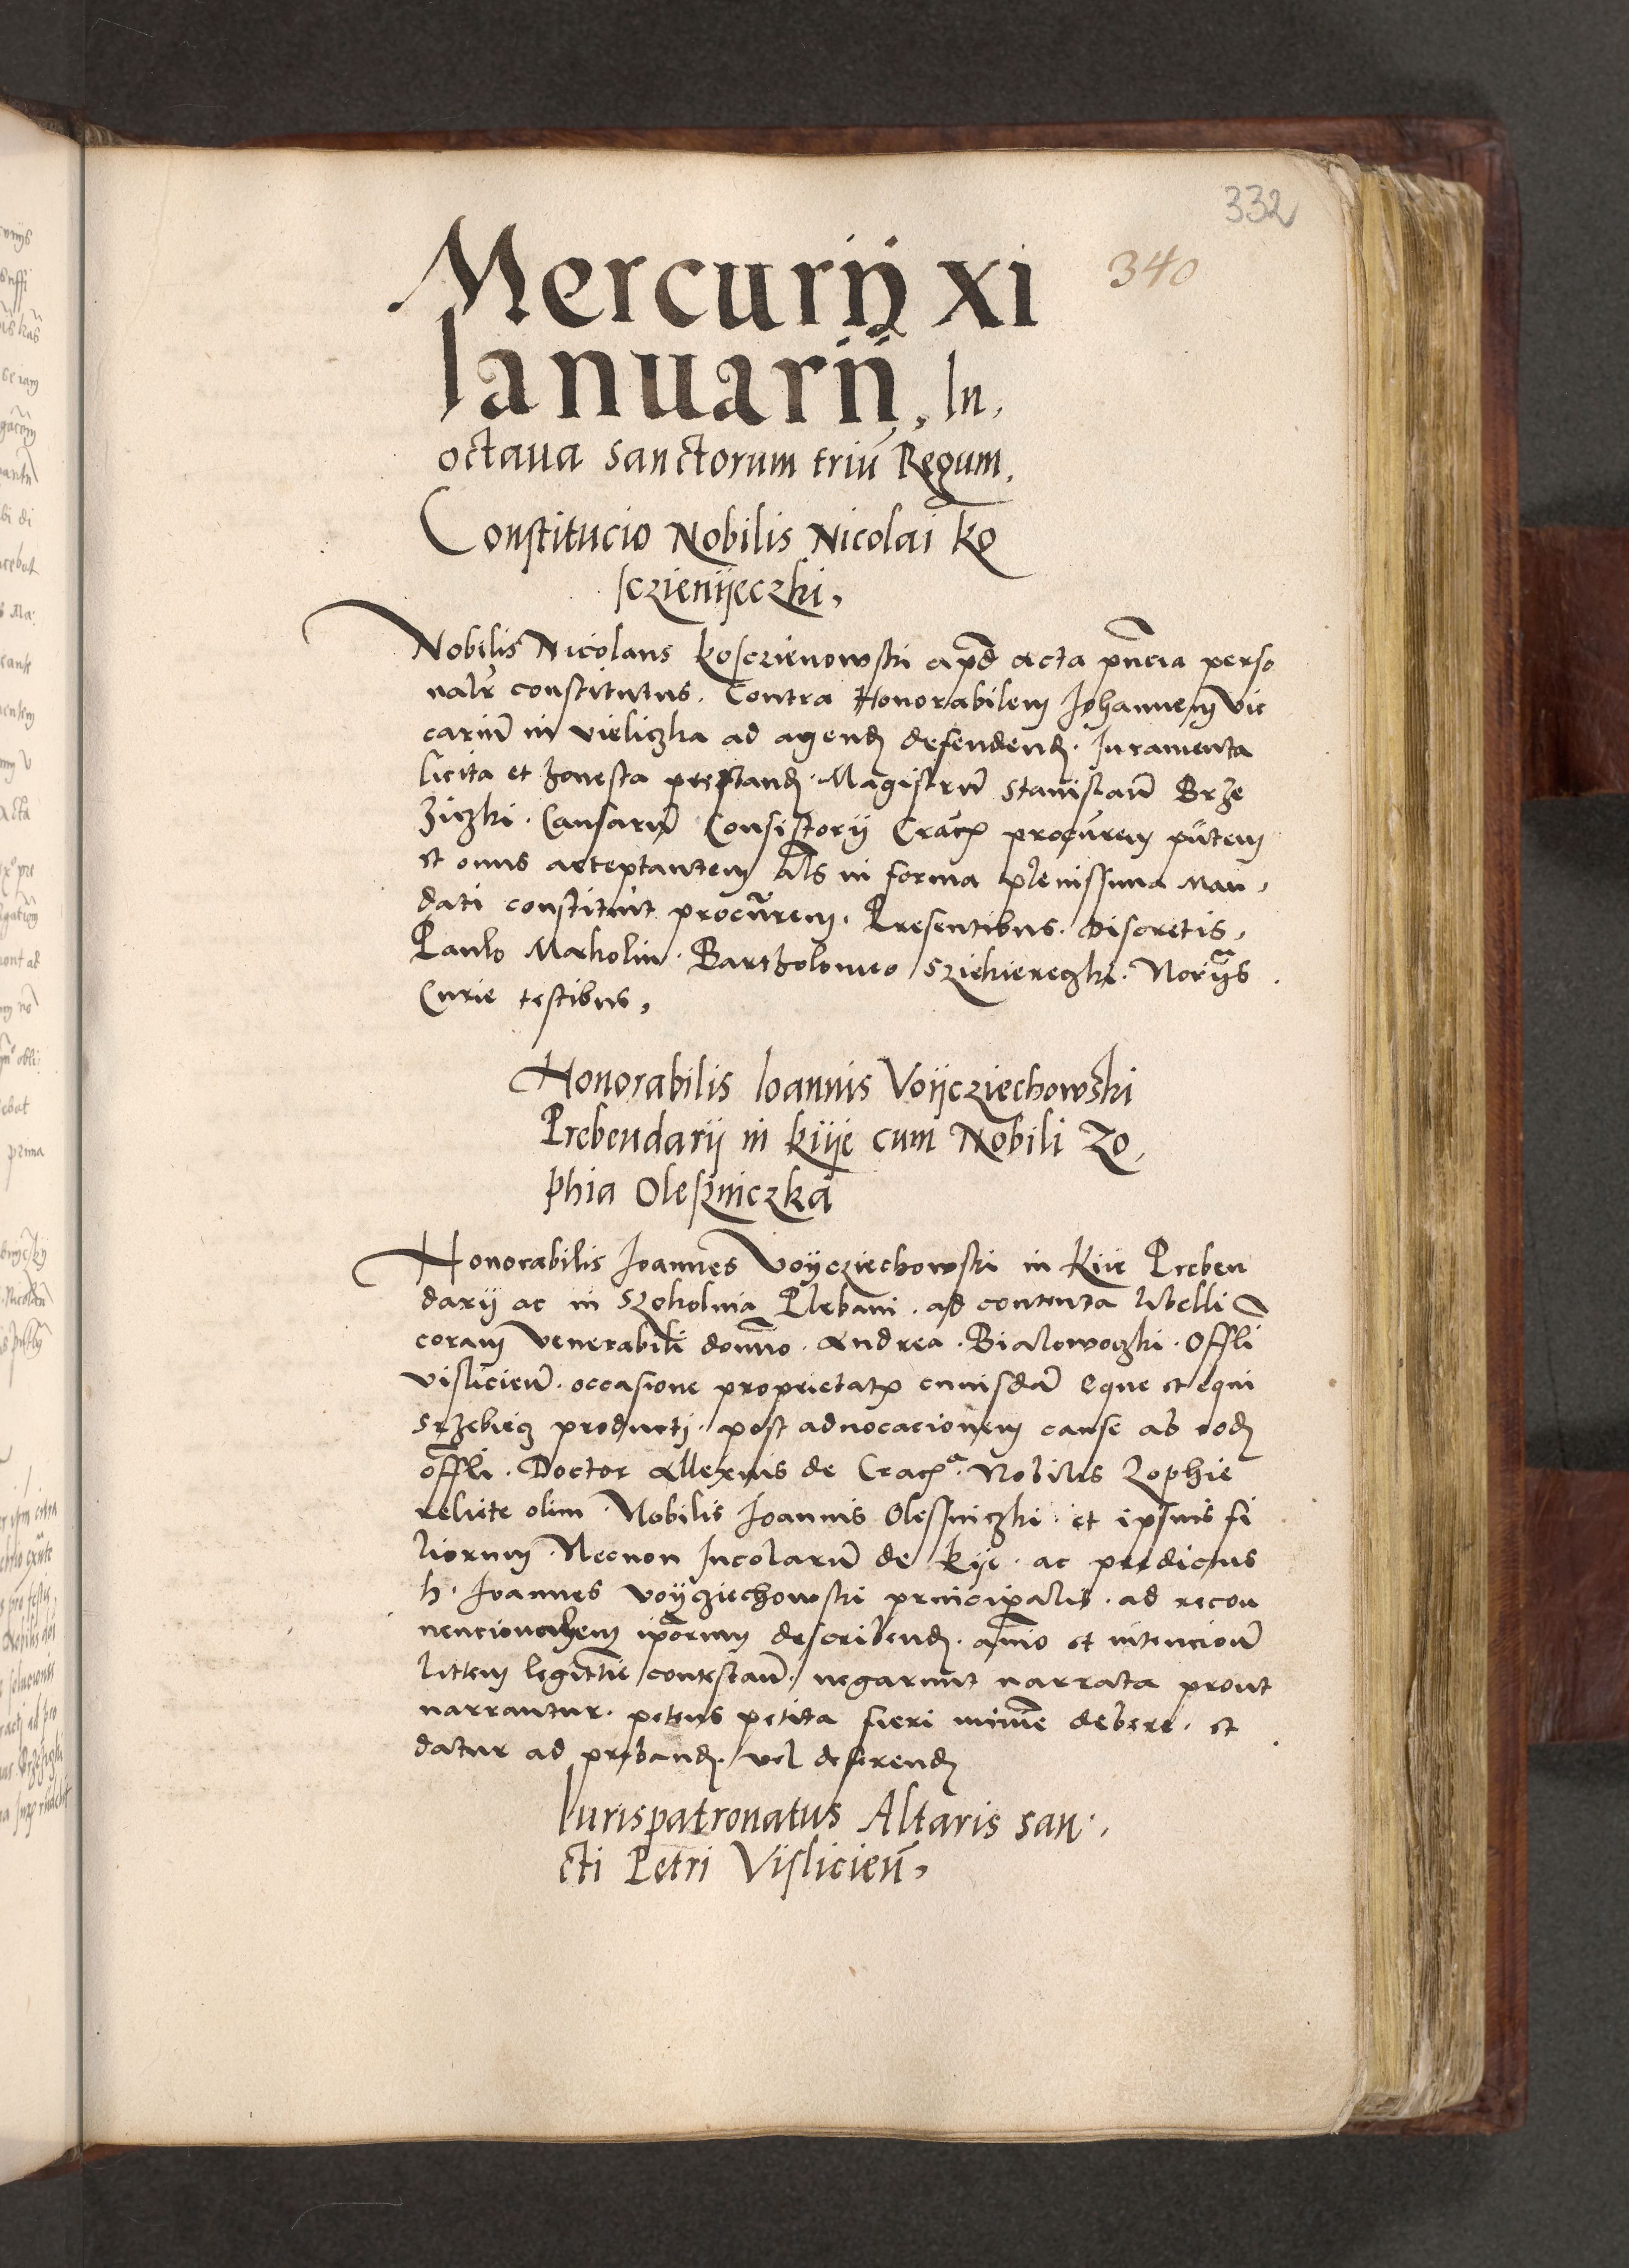 332
340
Mercurij xi
Ianuarij, In,
octaua sanctorum triū Regum,
Constitucio Nobilis Nicolai Ko
sczienijeczki,
Nobilis Nicolaus Kosczienowski apd̄ acta pn̄cia perso
nalr̄ constitutus. Contra Honorabilem Johannem Vic
carium̄ in Vieliczka ad agend defendend. Juramenta
licita et honesta prestand. Magistrū Stanislaū Brze
ziczki. Causarū Consistorij Crac procūrem pn̄tem
et onus acceptantem als in forma plenissima Man,
dati constituit procūrem. Presentibus. Discretis,
Paulo Makolin. Bartholomeo Sziekiereczki. Norijs.
Curie testibus,
Honorabilis Ioannis Voijcziechowski
Prebendarij in Kije cum Nobili Zo,
phia Olesniczka
Honorabilis Joannes Voijcziechowski in Kije Preben
darij ac in Szokolnia Plebani. ad contenta libelli
coram Venerabili domno. Andrea. Bialowoczki. Offli
Vislicien̄. occasione proprietatis cuiusdā eque et equi
srzebiecz producti. post aduocacionem cause ab eod
offli. Doctor Allexius de Crac. Nobilis Zophie
relicte olim. Nobilis Joannis Olessniczki. et ipsius fi
liorum. Necnon Incolarū de Kije. ac predictus
h. Joannes Voijcziechowski principalis. ad recon
nencionem ipōrum describend. animo et intencion̄
littem legittime contestan̄. negarunt narrata prout
narrantur. petens petita fieri minime debere. et
datur ad proband. vel deferend
Iurispatronatus Altaris san.,
cti Petri Vislicien̄,